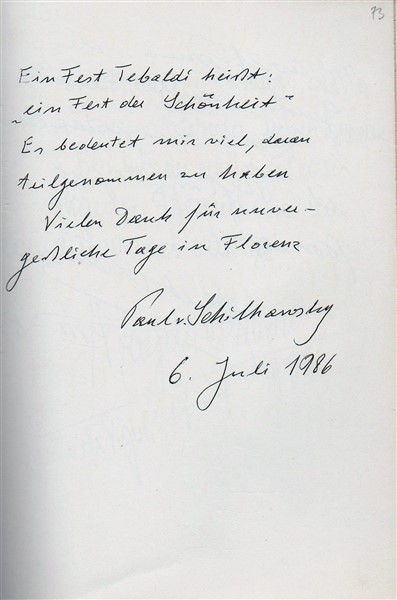 73
Ein Fest Tebaldi heißt:
„ein Fest der Schönheit"
Es bedeutet mir viel, daran
teilgenommen zu haben
Vielen Dank für unver-
geßliche Tage in Florenz
Paul v. Schilhawsky
6. Juli 1986